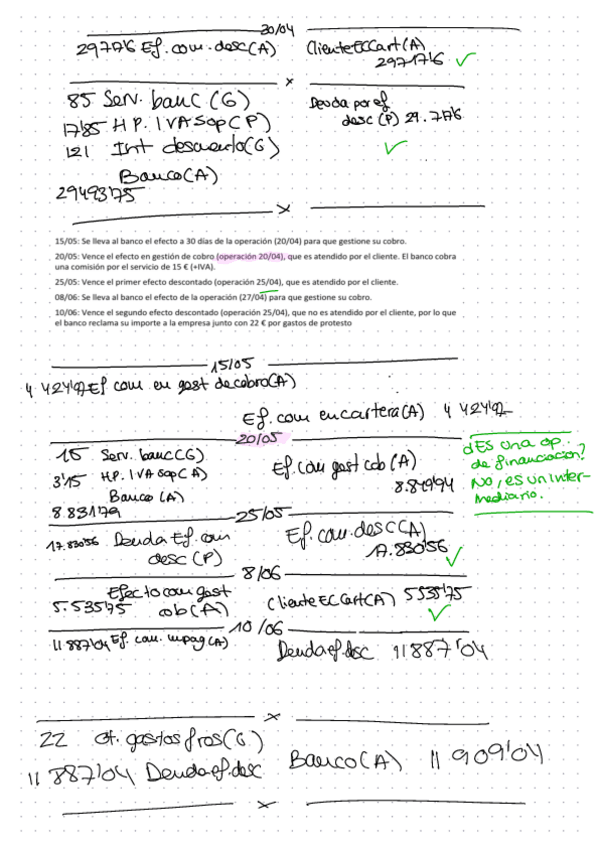 20/04
29717'6 Ef. com. desc(A) ClienteECCart(A)
29717'6 ✓
x
85 Serv. banc (G) Deuda por ef
17'85 H.P. IVA Sop(P) desc (P) 29.717'6
121 Int descuento(G) ✓
Banco(A)
29493'75
x
15/05: Se lleva al banco el efecto a 30 días de la operación (20/04) para que gestione su cobro.
20/05: Vence el efecto en gestión de cobro (operación 20/04), que es atendido por el cliente. El banco cobra
una comisión por el servicio de 15 € (+IVA).
25/05: Vence el primer efecto descontado (operación 25/04), que es atendido por el cliente.
08/06: Se lleva al banco el efecto de la operación (27/04) para que gestione su cobro.
10/06: Vence el segundo efecto descontado (operación 25/04), que no es atendido por el cliente, por lo que
el banco reclama su importe a la empresa junto con 22 € por gastos de protesto
15/05
Ef com en gest de cobro(A)
Ef. com en cartera(A)
20/05
15 Serv. banc(G)
3'15 H.P. IVA Sop(A) Ef. com gest cob (A)
Banco (A)
25/05
Deuda Ef. com Ef. com. desc(A)
desc (P) 17.830'56 ✓
8/06
Efecto com gest
5.535'75 cob(A) ClienteECCart(A) 5535'75
✓
10/06
11887'04 Ef. com. impag(A) Deuda ef. desc 11887'04
¿Es una op.
de financiacion?
No, es un inter-
mediario.
x
22 Ot. gastos fros(G)
11887'04 Deuda ef. desc Banco(A) 11909'04
x